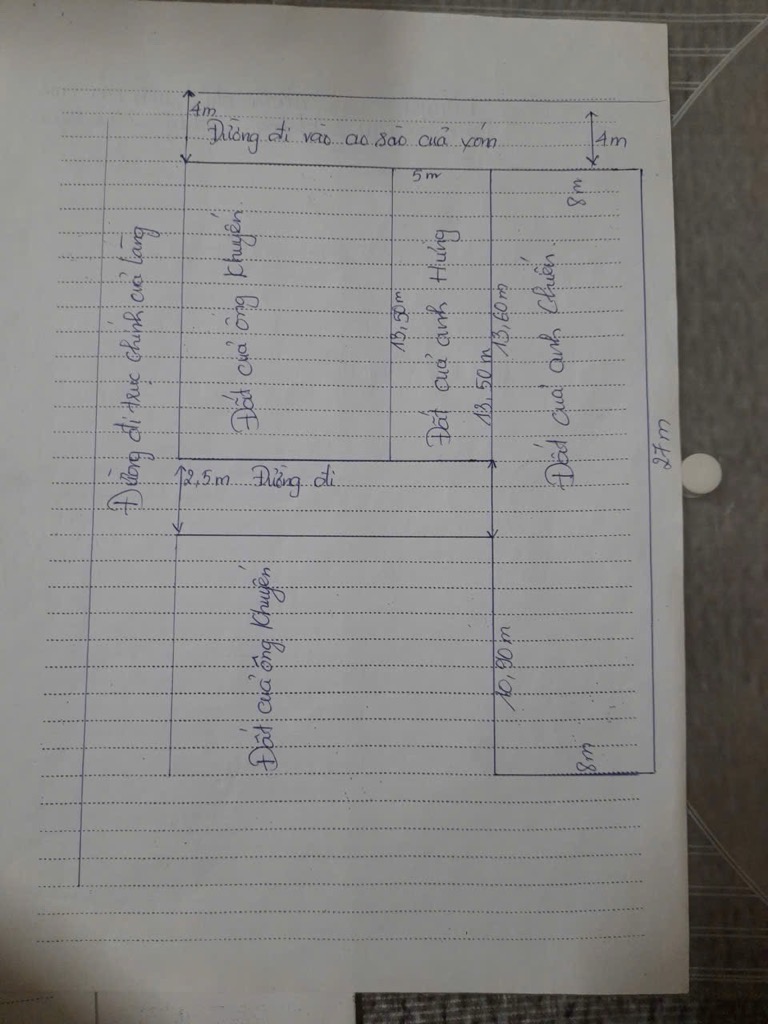 4m
Đường đi vào ao sào cuả xóm
4m
5m
8m
Đường đi trục chính cuả làng
Đất cuả ông Khuyến.
13,50m
Đất cuả anh Hưng
13,50m
13,60m
Đất cuả anh Chiến.
27m
2,5m Đường đi
Đất cuả ông Khuyến
10,90m
8m